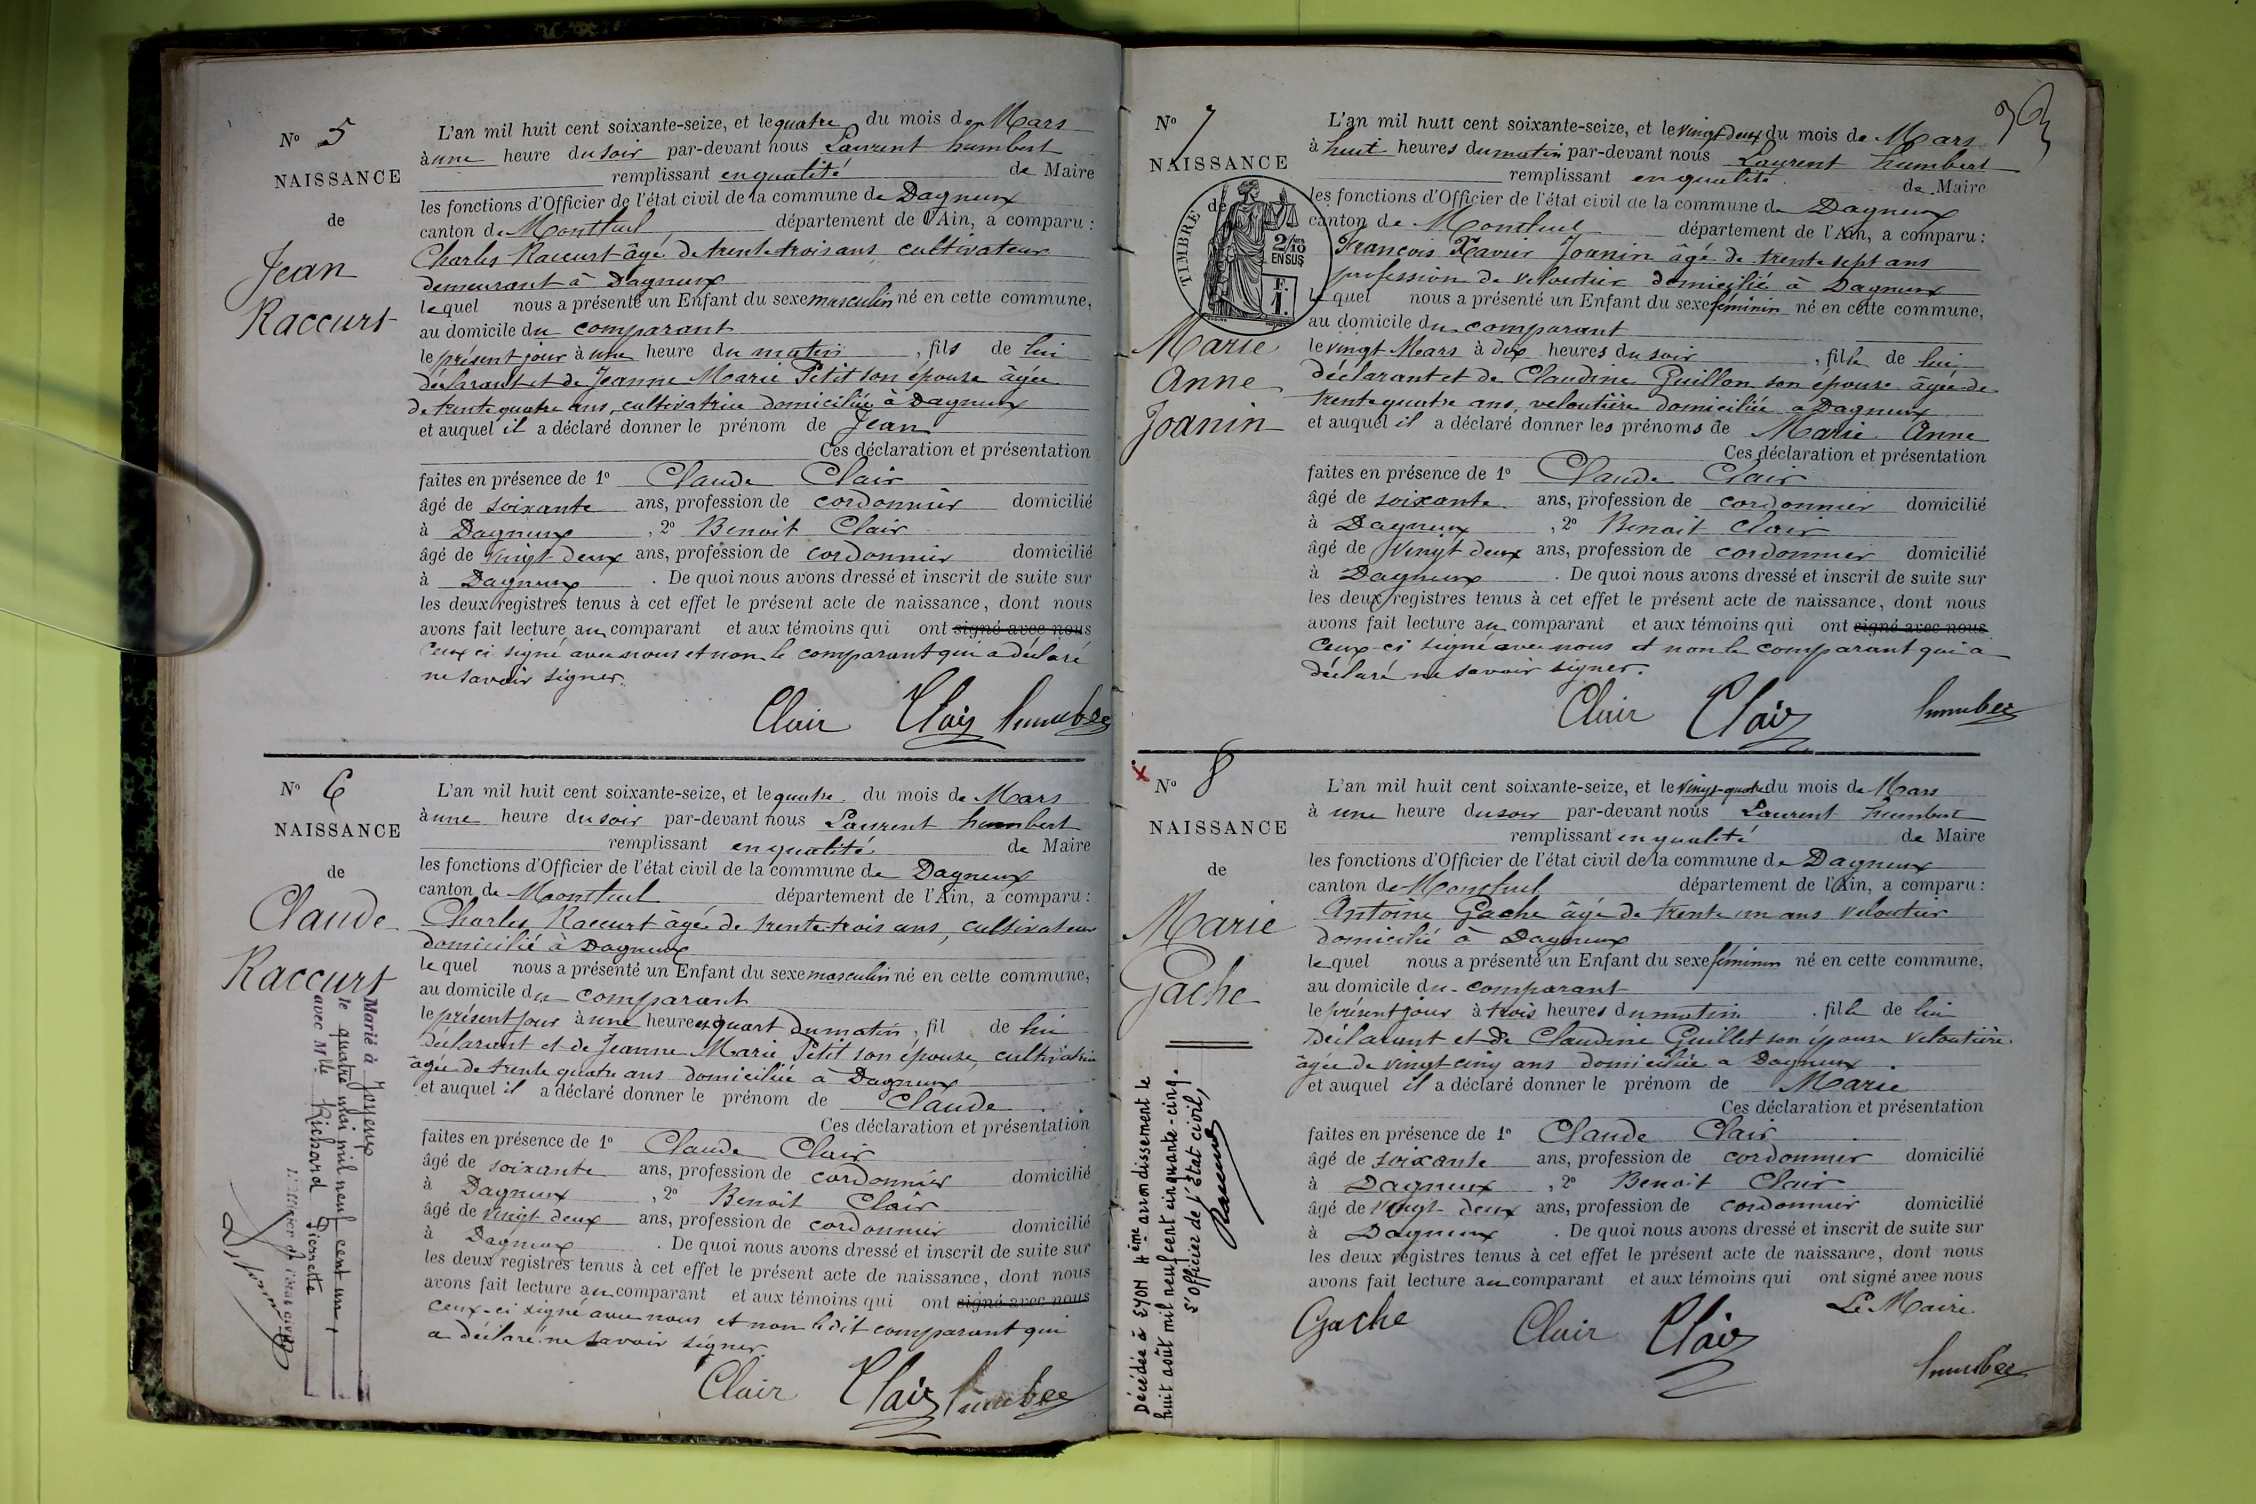 N° 5
NAISSANCE
de
Jean
Raccurt
L'an mil huit cent soixante-seize, et le quatre du mois de Mars
à une heure du soir par-devant nous Laurent humbert
remplissant en qualité de Maire
les fonctions d'Officier de l'état civil de la commune de Dagneux
canton de Montluel département de l'Ain, a comparu :
Charles Raccurt âgé de trente trois ans, cultivateur
demeurant à Dagneux
lequel nous a présenté un Enfant du sexe masculin né en cette commune,
au domicile du comparant
le présent jour à une heure du matin, fils de lui
déclarant et de Jeanne Marie Petit son épouse âgée
de trente quatre ans, cultivatrice domiciliée à Dagneux
et auquel il a déclaré donner le prénom de Jean
Ces déclaration et présentation
faites en présence de 1° Claude Clair
âgé de soixante ans, profession de cordonnier domicilié
à Dagneux, 2° Benoit Clair
âgé de vingt deux ans, profession de cordonnier domicilié
à Dagneux. De quoi nous avons dressé et inscrit de suite sur
les deux registres tenus à cet effet le présent acte de naissance, dont nous
avons fait lecture au comparant et aux témoins qui ont signé avec nous
ceux ci signé avec nous et non le comparant qui a déclaré
ne savoir signer.
Clair Clair humbert
N° 6
NAISSANCE
de
Claude
Raccurt
Marié à Joyeux
le quatre mai mil neuf cent un,
avec Mlle Richard Pierrette
L'officier de l'état civil
L'an mil huit cent soixante-seize, et le quatre du mois de Mars
à une heure du soir par-devant nous Laurent humbert
remplissant en qualité de Maire
les fonctions d'Officier de l'état civil de la commune de Dagneux
canton de Montluel département de l'Ain, a comparu :
Charles Raccurt âgé de trente trois ans, cultivateur
domicilié à Dagneux
lequel nous a présenté un Enfant du sexe masculin né en cette commune,
au domicile du comparant
le présent jour à une heure et quart du matin, fil de lui
déclarant et de Jeanne Marie Petit son épouse, cultivatrice
âgée de trente quatre ans domiciliée à Dagneux
et auquel il a déclaré donner le prénom de Claude
Ces déclaration et présentation
faites en présence de 1° Claude Clair
âgé de soixante ans, profession de cordonnier domicilié
à Dagneux, 2° Benoit Clair
âgé de vingt deux ans, profession de cordonnier domicilié
à Dagneux. De quoi nous avons dressé et inscrit de suite sur
les deux registres tenus à cet effet le présent acte de naissance, dont nous
avons fait lecture au comparant et aux témoins qui ont signé avec nous
ceux-ci signé avec nous et non ledit comparant qui
a déclaré ne savoir signer.
Clair Clair humbert
N° 7
NAISSANCE
de
TIMBRE
2/10
EN SUS
F.
1.
Marie
Anne
Joanin
L'an mil huit cent soixante-seize, et le vingt deux du mois de Mars
à huit heures du matin par-devant nous Laurent humbert
remplissant en qualité de Maire
les fonctions d'Officier de l'état civil de la commune de Dagneux
canton de Montluel département de l'Ain, a comparu :
François Xavier Joanin âgé de trente sept ans
profession de veloutier domicilié à Dagneux
lequel nous a présenté un Enfant du sexe féminin né en cette commune,
au domicile du comparant
le vingt Mars à dix heures du soir, fille de lui
déclarant et de Claudine Guillon son épouse âgée de
trente quatre ans, veloutière domiciliée à Dagneux
et auquel il a déclaré donner les prénoms de Marie Anne
Ces déclaration et présentation
faites en présence de 1° Claude Clair
âgé de soixante ans, profession de cordonnier domicilié
à Dagneux, 2° Benoit Clair
âgé de Vingt deux ans, profession de cordonnier domicilié
à Dagneux. De quoi nous avons dressé et inscrit de suite sur
les deux registres tenus à cet effet le présent acte de naissance, dont nous
avons fait lecture au comparant et aux témoins qui ont signé avec nous
Ceux-ci signé avec nous et non le comparant qui a
déclaré ne savoir signer.
Clair Clair humbert
x
N° 8
NAISSANCE
de
Marie
Gache
Décédée à LYON 4ème arrondissement le
huit août mil neuf cent cinquante-cinq.
L'officier de l'État civil,
L'an mil huit cent soixante-seize, et le vingt-quatre du mois de Mars
à une heure du soir par-devant nous Laurent humbert
remplissant en qualité de Maire
les fonctions d'Officier de l'état civil de la commune de Dagneux
canton de Montluel département de l'Ain, a comparu :
Antoine Gache âgé de trente un ans veloutier
domicilié à Dagneux
lequel nous a présenté un Enfant du sexe féminin né en cette commune,
au domicile du comparant
le présent jour à trois heures du matin. fille de lui
déclarant et de Claudine Guillet son épouse veloutière
âgée de vingt cinq ans domiciliée a Dagneux
et auquel il a déclaré donner le prénom de Marie
Ces déclaration et présentation
faites en présence de 1° Claude Clair
âgé de soixante ans, profession de cordonnier domicilié
à Dagneux, 2° Benoit Clair
âgé de Vingt-deux ans, profession de cordonnier domicilié
à Dagneux. De quoi nous avons dressé et inscrit de suite sur
les deux registres tenus à cet effet le présent acte de naissance, dont nous
avons fait lecture au comparant et aux témoins qui ont signé avec nous
Le Maire.
Gache Clair Clair humbert